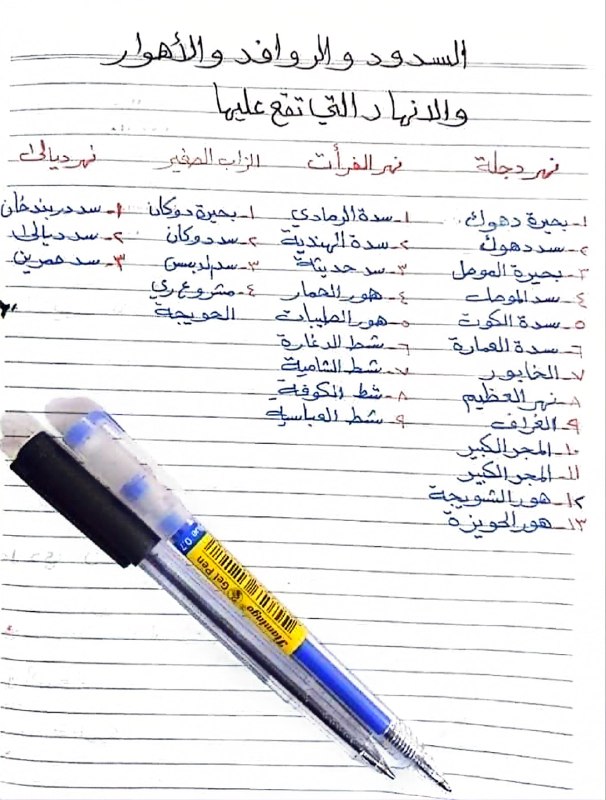 السدود والروافد والأهوار
والانهار التي تقع عليها
نهر دجلة
١- بحيرة دهوك
٢- سد دهوك
٣- بحيرة الموصل
٤- سد الموصل
٥- سدة الكوت
٦- سدة العمارة
٧- الخابور
٨- نهر العظيم
٩- الغراف
١٠- المجر الكبير
١١- المجر الكبير
١٢- هور الشويجة
١٣- هور الحويزة
نهر الفرأت
١- سدة الرمادي
٢- سدة الهندية
٣- سد حديثة
٤- هور الحمار
٥- هور الصليبات
٦- شط الدغارة
٧- شط الشامية
٨- شط الكوفة
٩- شط العباسية
الزاب الصغير
١- بحيرة دوكان
٢- سد دوكان
٣- سد الدبس
٤- مشروع ري
الحويجة
نهر ديالى
١- سد دربندخان
٢- سد ديالى
٣- سد حمرين
Flamingo Gel Pen
0.7